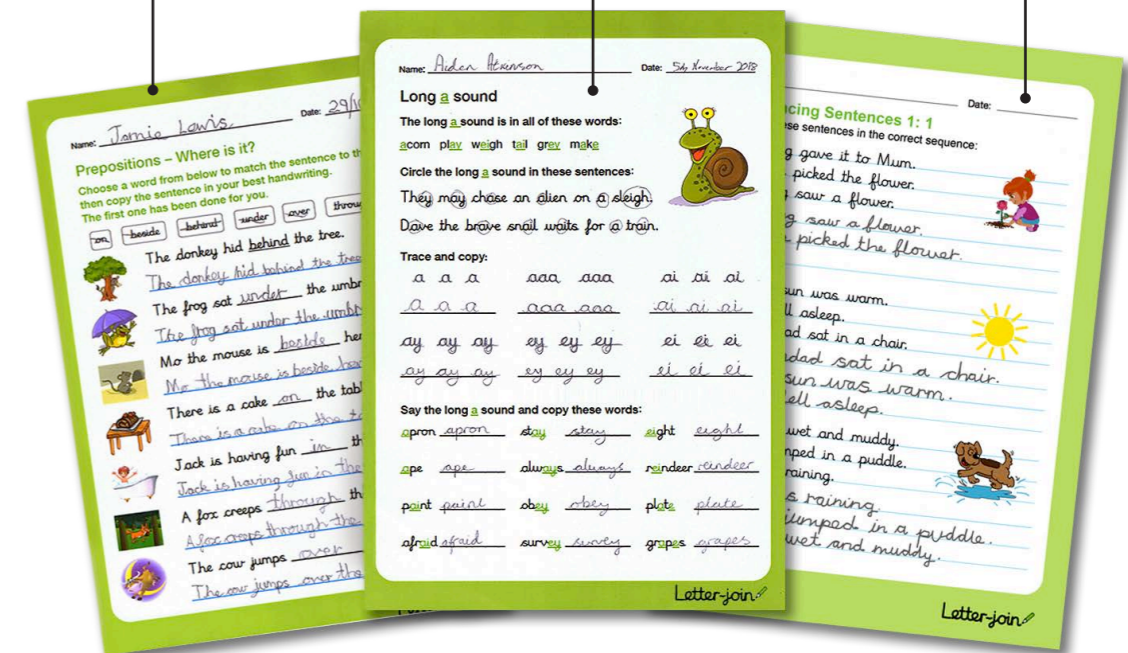 Name: Jamie Lewis Date: 29/10
Prepositions – Where is it?
Choose a word from below to match the sentence to th
then copy the sentence in your best handwriting.
The first one has been done for you.
on beside behind under over throu
The donkey hid behind the tree.
The donkey hid behind the tree
The frog sat under the umbr
The frog sat under the umbr
Mo the mouse is beside her
Mo the mouse is beside her
There is a cake on the tabl
There is a cake on the ta
Jack is having fun in th
Jack is having fun in the
A fox creeps through th
A fox creeps through the
The cow jumps over
The cow jumps over the
Name: Aiden Atkinson Date: 5th November 2018
Long a sound
The long a sound is in all of these words:
acorn play weigh tail grey make
Circle the long a sound in these sentences:
They may chase an alien on a sleigh.
Dave the brave snail waits for a train.
Trace and copy:
a a a aaa aaa ai ai ai
a a a aaa aaa ai ai ai
ay ay ay ey ey ey ei ei ei
ay ay ay ey ey ey ei ei ei
Say the long a sound and copy these words:
apron apron stay stay eight eight
ape ape always always reindeer reindeer
paint paint obey obey plate plate
afraid afraid survey survey grapes grapes
Letter-join
Date:
cing Sentences 1: 1
ese sentences in the correct sequence:
g gave it to Mum.
picked the flower.
g saw a flower.
g saw a flower.
picked the flower.
sun was warm.
ll asleep.
ad sat in a chair.
dad sat in a chair.
sun was warm.
ell asleep.
wet and muddy.
mped in a puddle.
raining.
s raining.
jumped in a puddle.
wet and muddy.
Letter-join